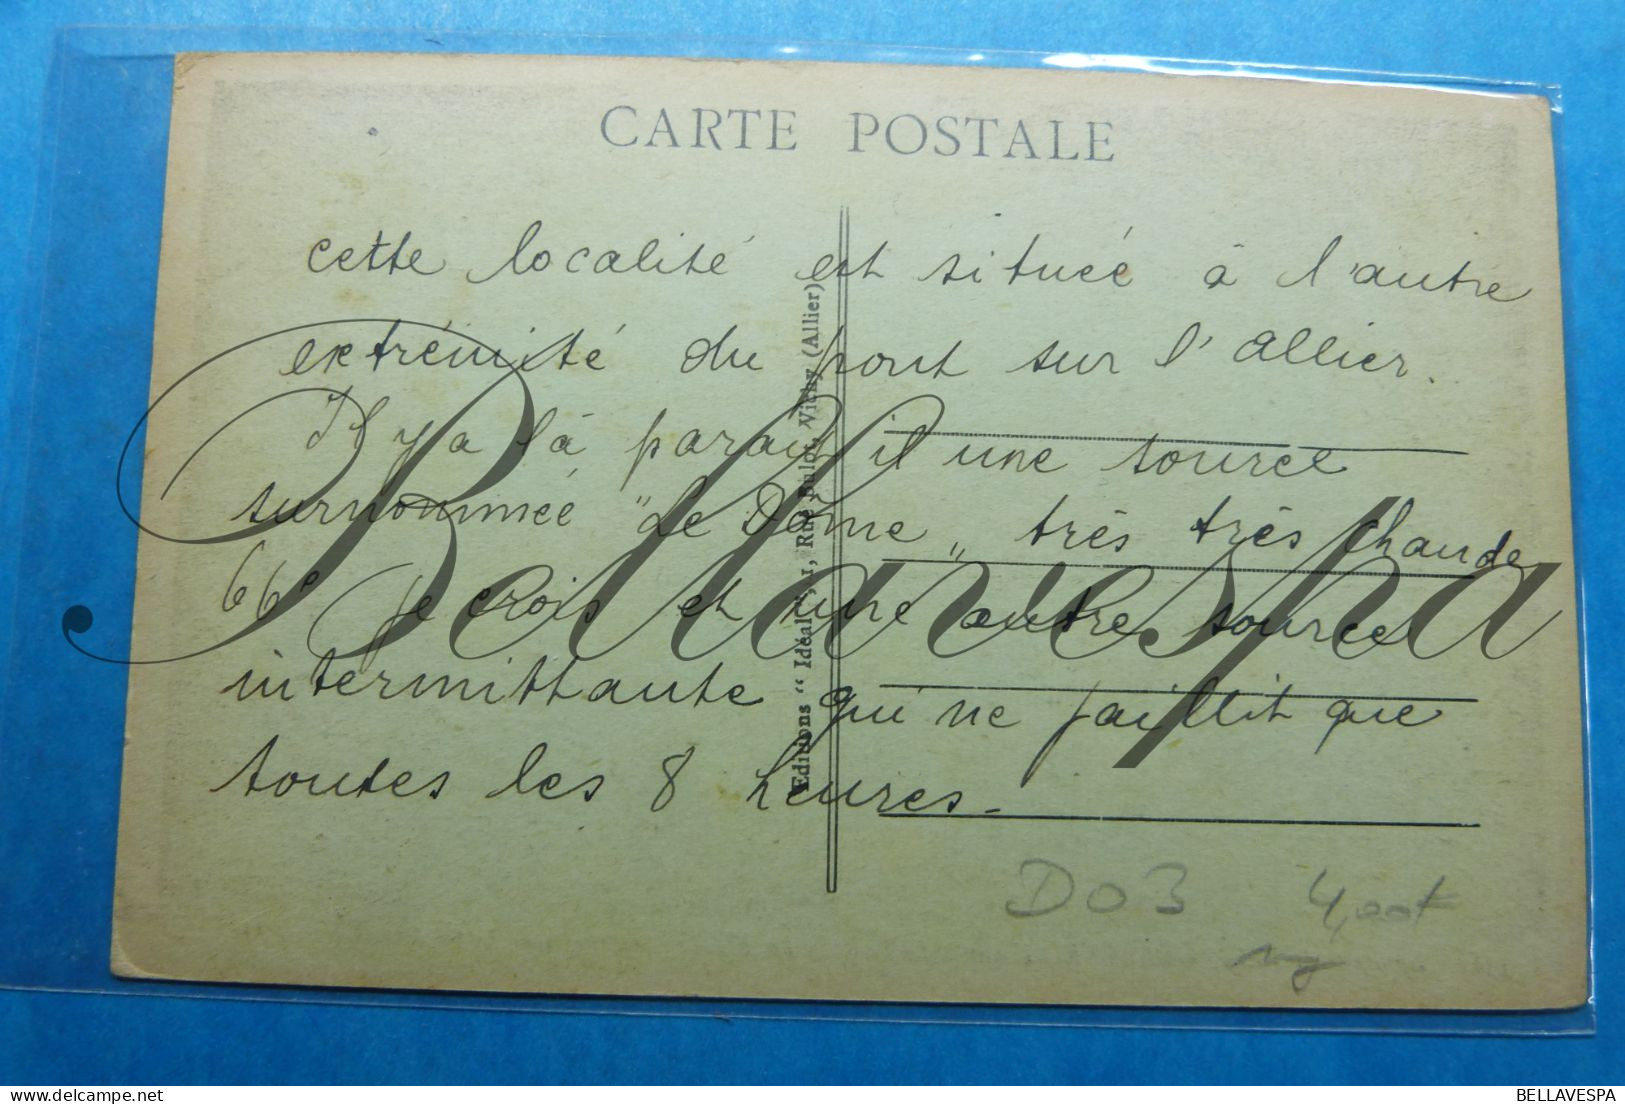 CARTE POSTALE
cette localité est située à l'autre
extrémité du pont sur l'Allier.
Il y a là parait il une source
surnommée "Le Dôme" très très chaude
66° je crois et une autre source
intermittante qui ne jaillit que
toutes les 8 heures.
Editions "Idéal", 1, Rue Sulot, Vichy (Allier)
D03
Bellavespa
BELLAVESPA